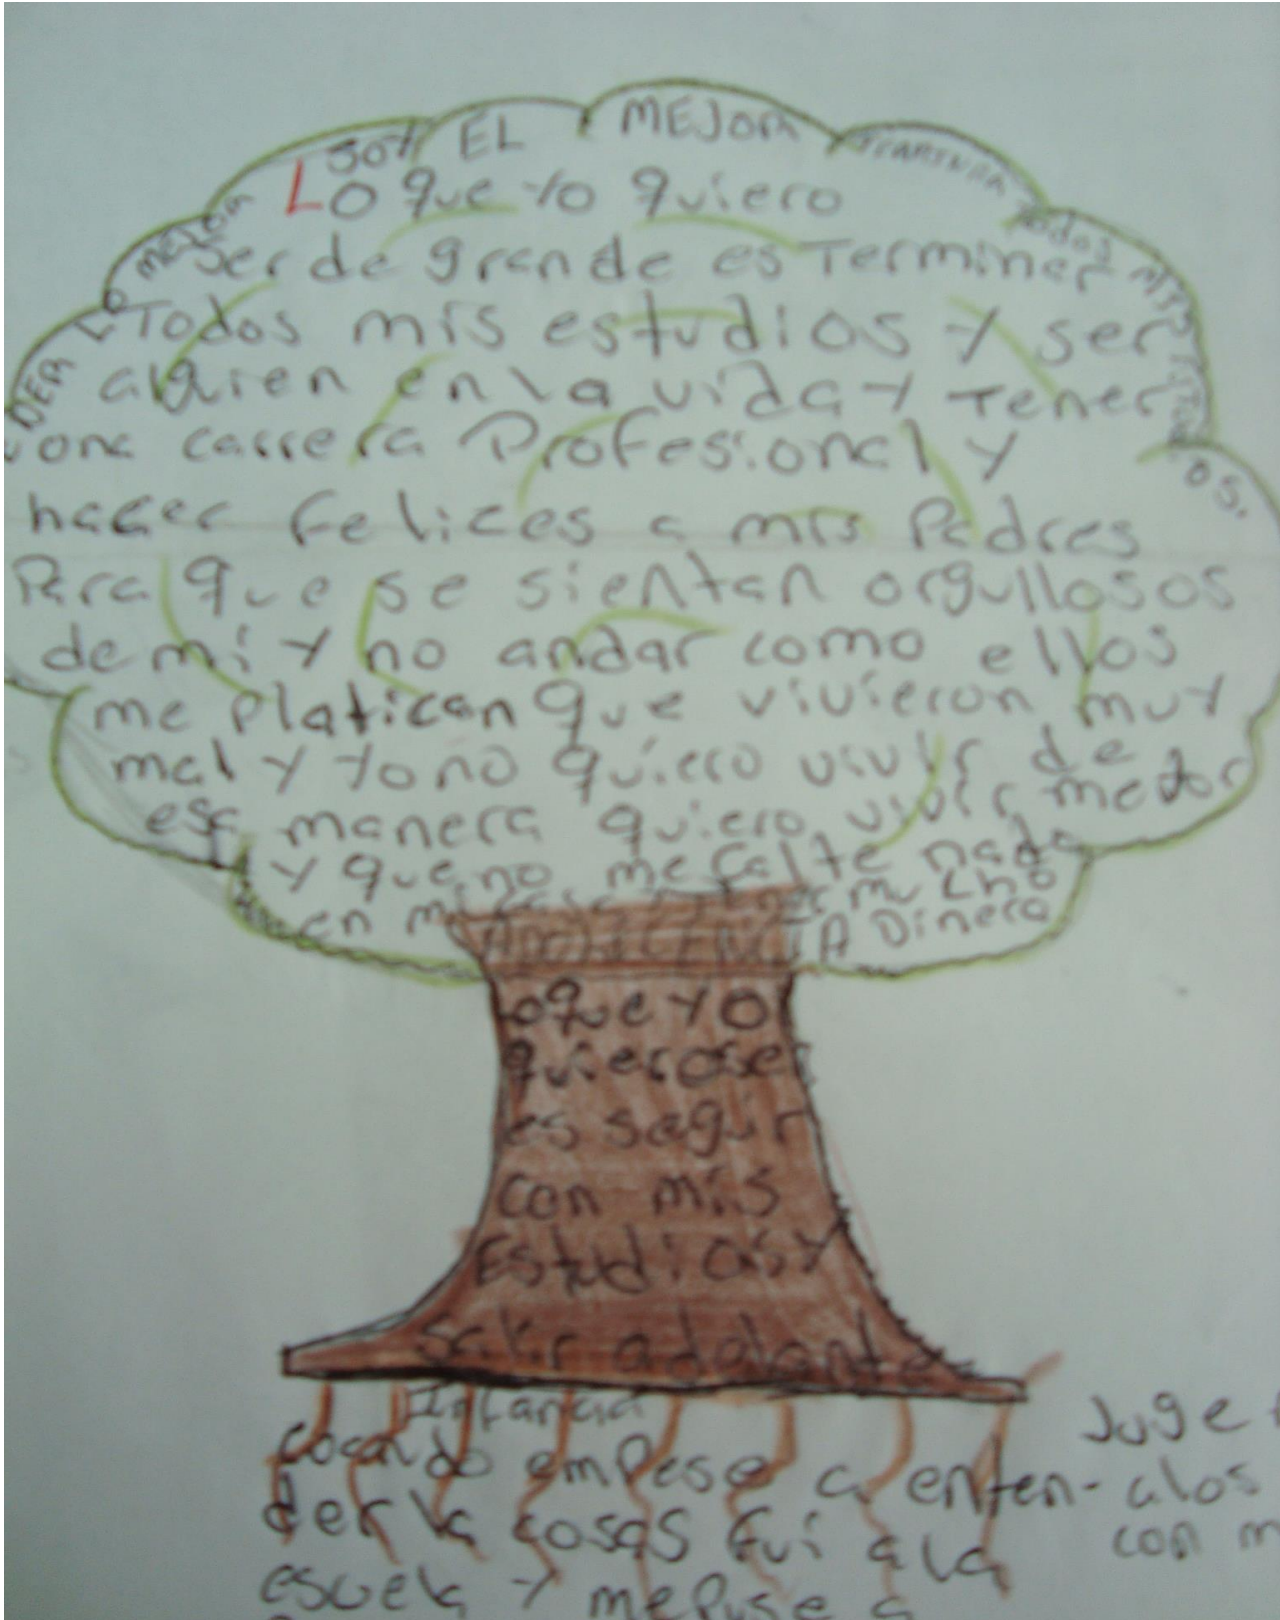 DER LO MEJOR SOY EL MEJOR TERMINAR TODOS MIS ESTUDIOS.
LO que Yo quiero
ser de grande es Terminar
Todos mis estudios y ser
alguien en la vida y Tener
una carrera Profesional y
hacer felices a mis Padres
Para que se sientan orgullosos
de mi y no andar como ellos
me platican que vivieron muy
mal y yo no quiero vivir de
esa manera quiero vivir mejor
y que no me falte nada
en mi casa tener mucho
Dinero
ADOLICENCIA
Lo que yo
quiero ser
es seguir
con mis
Estudios y
salir adelante
Infancia
cocando empese a enten-
der la cosas fui a la
escuela y me puse a
Juge
alos
con m